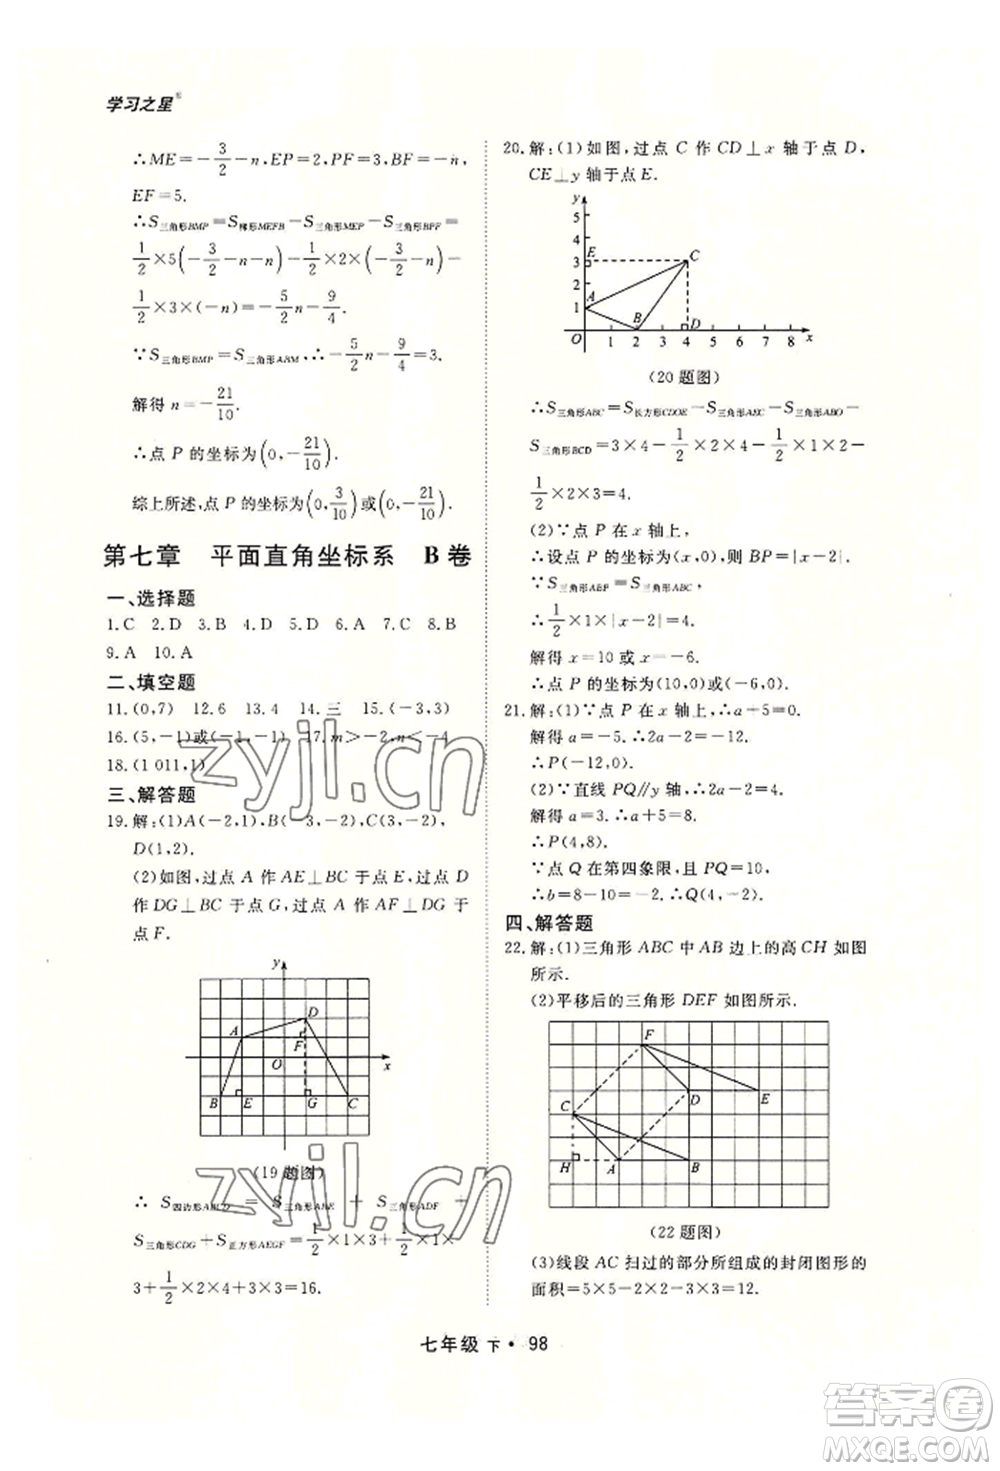 学习之星
∴ME=-3/2-n,EP=2,PF=3,BF=-n,
EF=5.
∴S三角形BMP=S梯形MEFB-S三角形MEP-S三角形BPF=
1/2×5(-3/2-n-n)-1/2×2×(-3/2-n)-
1/2×3×(-n)=-5/2n-9/4.
∵S三角形BMP=S三角形ABM,∴-5/2n-9/4=3.
解得 n=-21/10.
∴点 P 的坐标为(0,-21/10).
综上所述,点 P 的坐标为(0,3/10)或(0,-21/10).
第七章 平面直角坐标系 B 卷
一、选择题
1.C 2.D 3.B 4.D 5.D 6.A 7.C 8.B
9.A 10.A
二、填空题
11.(0,7) 12.6 13.4 14.三 15.(-3,3)
16.(5,-1)或(-1,-1) 17.m>-2,n<-4
18.(1 011,1)
三、解答题
19.解:(1)A(-2,1),B(-3,-2),C(3,-2),
D(1,2).
(2)如图,过点 A 作 AE⊥BC 于点 E,过点 D
作 DG⊥BC 于点 G,过点 A 作 AF⊥DG 于
点 F.
y
D
A
F
O
x
B
E
G
C
(19 题图)
∴ S四边形ABCD = S三角形ABE + S三角形ADF +
S三角形CDG+S正方形AEGF=1/2×1×3+1/2×1×
3+1/2×2×4+3×3=16.
20.解:(1)如图,过点 C 作 CD⊥x 轴于点 D,
CE⊥y 轴于点 E.
y
5
4
E
3
C
2
A
1
B
D
O 1 2 3 4 5 6 7 8 x
(20 题图)
∴S三角形ABC=S长方形CDOE-S三角形AEC-S三角形ABO-
S三角形BCD=3×4-1/2×2×4-1/2×1×2-
1/2×2×3=4.
(2)∵点 P 在 x 轴上,
∴设点 P 的坐标为(x,0),则 BP=|x-2|.
∵S三角形ABP=S三角形ABC,
∴1/2×1×|x-2|=4.
解得 x=10 或 x=-6.
∴点 P 的坐标为(10,0)或(-6,0).
21.解:(1)∵点 P 在 x 轴上,∴a+5=0.
解得 a=-5.∴2a-2=-12.
∴P(-12,0).
(2)∵直线 PQ∥y 轴,∴2a-2=4.
解得 a=3.∴a+5=8.
∴P(4,8).
∵点 Q 在第四象限,且 PQ=10,
∴b=8-10=-2.∴Q(4,-2).
四、解答题
22.解:(1)三角形 ABC 中 AB 边上的高 CH 如图
所示.
(2)平移后的三角形 DEF 如图所示.
F
D
E
C
H
A
B
(22 题图)
(3)线段 AC 扫过的部分所组成的封闭图形的
面积=5×5-2×2-3×3=12.
七年级 下·98
zyjl.cn
zyjl.cn
答案圈
MXQE.COM